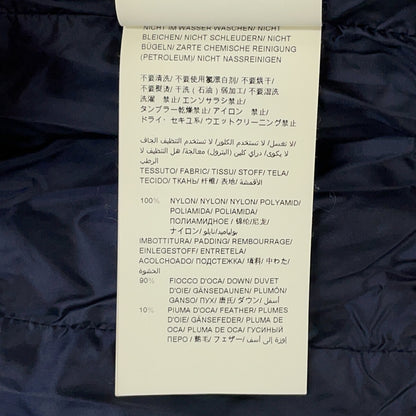 NICHT IM WASSER WASCHEN/ NICHT
BLEICHEN/ NICHT SCHLEUDERN/ NICHT
BÜGELN/ ZARTE CHEMISCHE REINIGUNG
(PETROLEUM)/ NICHT NASSREINIGEN
不要清洗/ 不要使用氯漂白剂/ 不要烘干/
不要熨烫/ 干洗（石油）弱加工/ 不要湿洗
洗濯 禁止/ エンソサラシ禁止/
タンブラー乾燥禁止/ アイロン 禁止/
ドライ、セキユ系/ ウエットクリーニング禁止
لا تغسل/ لا تستخدم الكلور/ لا تستخدم التنظيف الجاف/
لا يكوى/ دراي كلين (البترول) معالجة/ هل التنظيف
الرطب
TESSUTO/ FABRIC/ TISSU/ STOFF/ TELA/
TECIDO/ ТКАНЬ/ 纤维/ 表地/ الأقمشة
100% NYLON/ NYLON/ NYLON/ POLYAMID/
POLIAMIDA/ POLIAMIDA/
ПОЛИАМИДНОЕ/ 锦纶/尼龙/
ナイロン/
IMBOTTITURA/ PADDING/ REMBOURRAGE/
EINLEGESTOFF/ ENTRETELA/
ACOLCHOADO/ ПОДСТЕЖКА/ 填料/ 中わた/
الحشوة
90% FIOCCO D'OCA/ DOWN/ DUVET
D'OIE/ GÄNSEDAUNEN/ PLUMÓN/
GANSO/ ПУХ/ ダウン/ أسفل/
10% PIUMA D'OCA/ FEATHER/ PLUMES
D'OIE/ GÄNSEFEDER/ PLUMA DE
OCA/ PLUMA DE OCA/ ГУСИНЫЙ
ПЕРО/ 鹅毛/ フェザー/